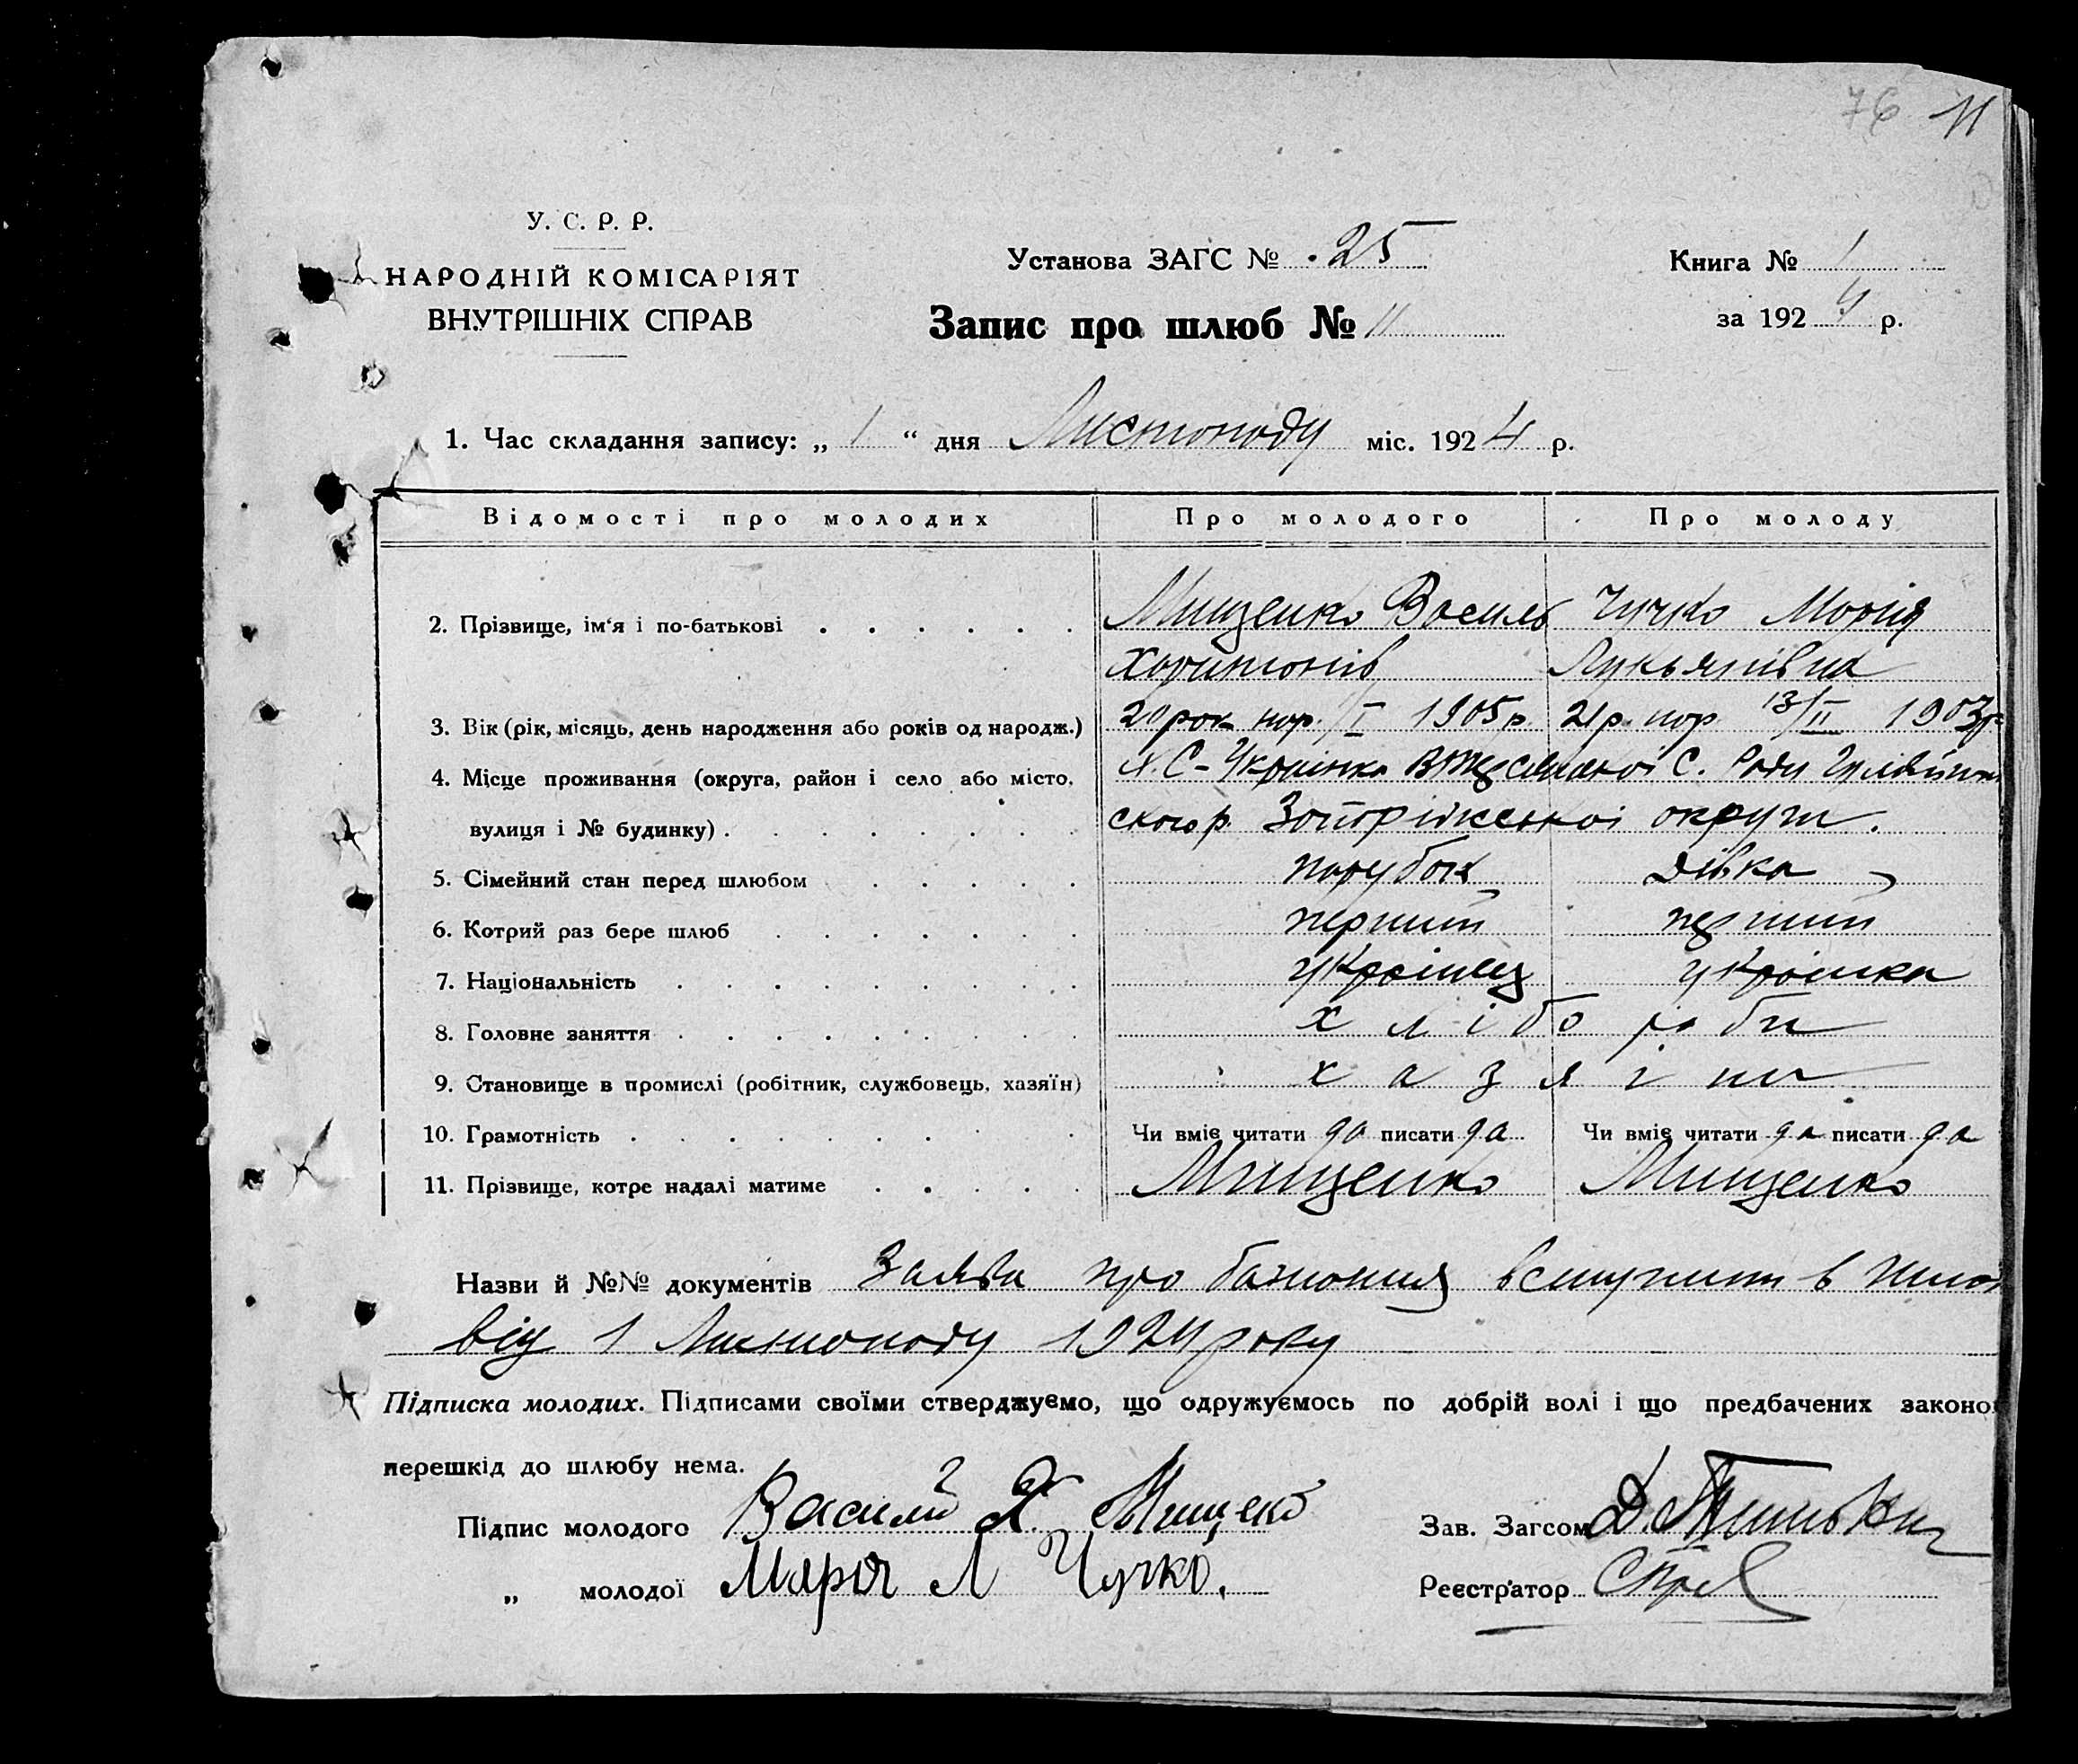 76 11
У. С. Р. Р.
НАРОДНІЙ КОМІСАРІЯТ
ВНУТРІШНІХ СПРАВ
Установа ЗАГС № 25
Запис про шлюб № 11
Книга № 1
за 1924 р.
1. Час складання запису: „ 1 “ дня Листопаду міс. 1924 р.
Відомості про молодих Про молодого Про молоду
2. Прізвище, ім'я і по-батькові Мищенко Василь Чучко Марія
Харитонів Лукьянівна
3. Вік (рік, місяць, день народження або років од народж.) 20 рок нар. 1/I 1905 р. 21 р. нар. 13/II 1903 р
4. Місце проживання (округа, район і село або місто, С. Ради
вулиця і № будинку) ского р. Запоріжської округи.
5. Сімейний стан перед шлюбом парубок дівка
6. Котрий раз бере шлюб перший перший
7. Національність українец українка
8. Головне заняття хлібороби
9. Становище в промислі (робітник, службовець, хазяїн) хазяіни
10. Грамотність Чи вміє читати да писати да Чи вміє читати да писати да
11. Прізвище, котре надалі матиме Мищенко Мищенко
Назви й №№ документів Заява про бажання вступити в
від 1 Листопаду 1924 року
Підписка молодих. Підписами своїми стверджуємо, що одружуємось по добрій волі і що предбачених законо
перешкід до шлюбу нема.
Підпис молодого Василий Х. Мищеко
Зав. Загсом
„ молодої Мария Л Чучко.
Реєстратор